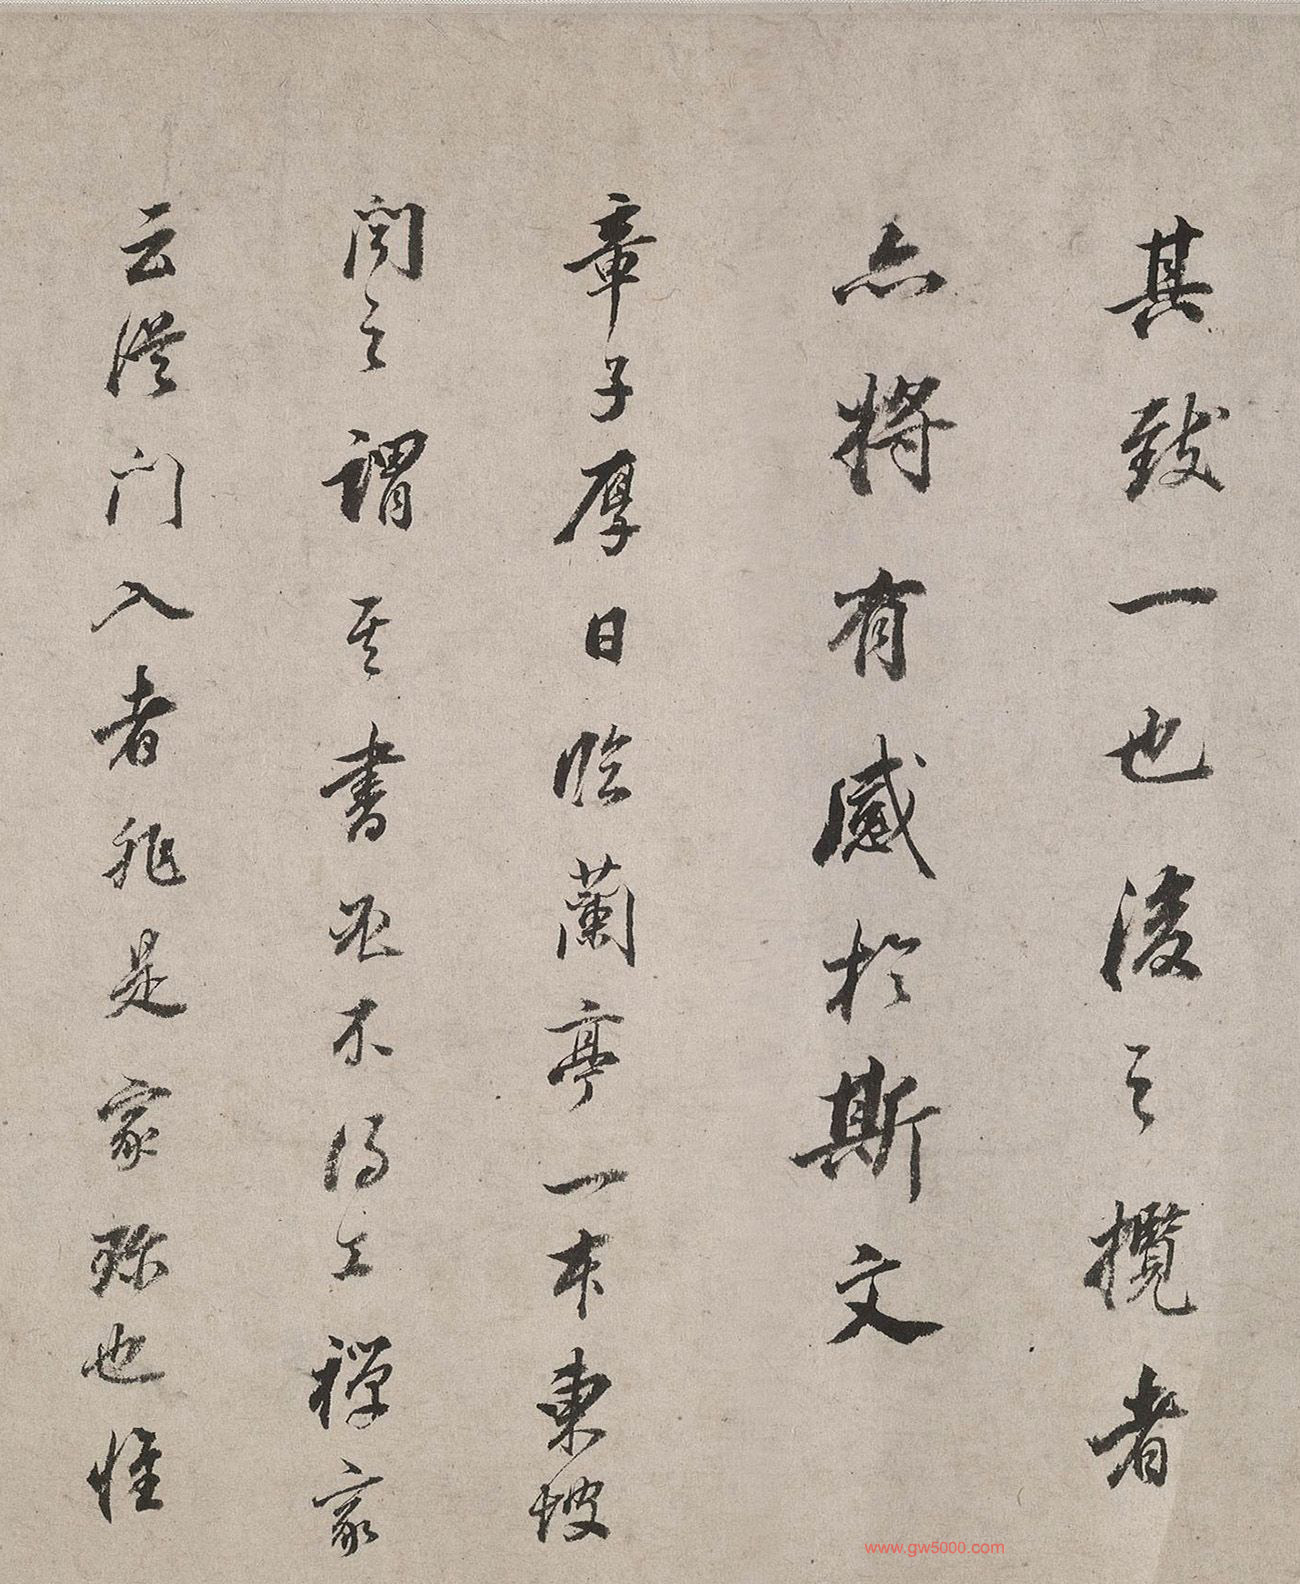 其致一也後之攬者
亦將有感於斯文
章子厚日臨蘭亭一本東坡
聞之謂其書必不得工禪家
云從門入者非是家珍也惟
www.gw5000.com